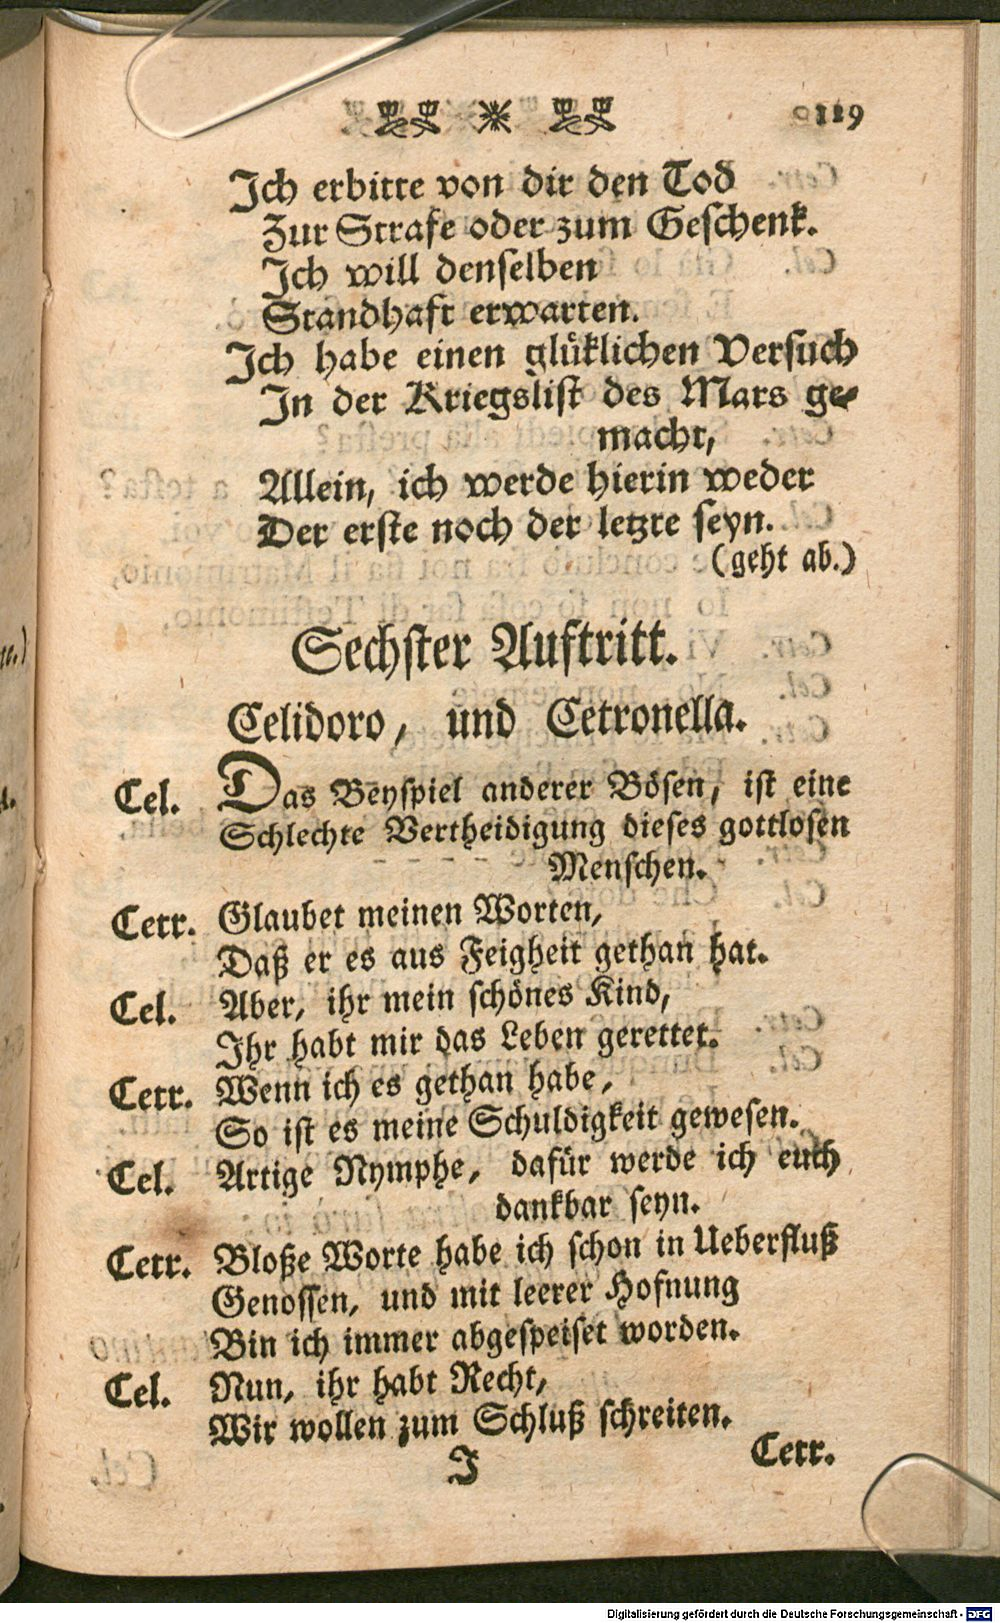 119
Ich erbitte von dir den Tod
Zur Strafe oder zum Geschenk.
Ich will denselben
Standhaft erwarten.
Ich habe einen glüklichen Versuch
In der Kriegslist des Mars ge-
macht,
Allein, ich werde hierin weder
Der erste noch der letzte seyn.
(geht ab.)
Sechster Auftritt.
Celidoro, und Cetronella.
Cel. Das Beyspiel anderer Bösen, ist eine
Schlechte Vertheidigung dieses gottlosen
Menschen.
Cetr. Glaubet meinen Worten,
Daß er es aus Feigheit gethan hat.
Cel. Aber, ihr mein schönes Kind,
Ihr habt mir das Leben gerettet.
Cetr. Wenn ich es gethan habe,
So ist es meine Schuldigkeit gewesen.
Cel. Artige Nymphe, dafür werde ich euch
dankbar seyn.
Cetr. Bloße Worte habe ich schon in Ueberfluß
Genossen, und mit leerer Hofnung
Bin ich immer abgespeiset worden.
Cel. Nun, ihr habt Recht,
Wir wollen zum Schluß schreiten.
J Cetr.
Digitalisierung gefördert durch die Deutsche Forschungsgemeinschaft - DFG